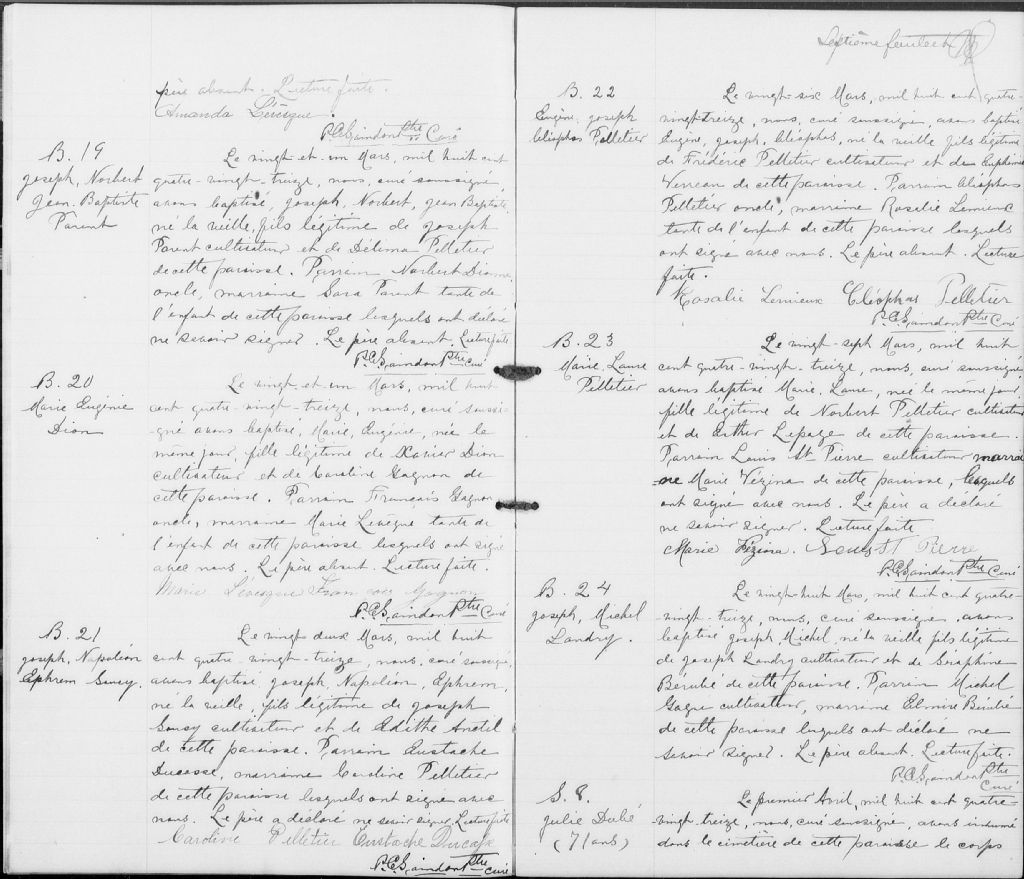 père absent. Lecture faite.
Amanda Lévèque.
P.C.Saindon Ptre Curé
B. 19
joseph, Norbert
Jean-Baptiste
Parent
Le vingt et un Mars, mil huit cent
quatre-vingt-treize, nous, curé soussigné,
avons baptisé, joseph, Norbert, jean Baptiste,
né la veille, fils légitime de joseph
Parent cultivateur et de Délima Pelletier
de cette paroisse. Parrain Norbert Dionne
oncle, marraine Sara Parent tante de
l'enfant de cette paroisse lesquels ont déclaré
ne savoir signer. Le père absent. Lecture faite
P.C.Saindon Ptre curé
B. 20
Marie Eugénie
Dion
Le vingt et un Mars, mil huit
cent quatre-vingt-treize, nous, curé soussi-
gné avons baptisé, Marie, Eugénie, née le
même jour, fille légitime de Xavier Dion
cultivateur et de Caroline Gagnon de
cette paroisse. Parrain Français Gagnon
oncle, marraine Marie Levèque tante de
l'enfant de cette paroisse lesquels ont signé
avec nous. Le père absent. Lecture faite.
Marie Levesque Fran cois Gagnon
P.C.Saindon Ptre Curé
B. 21
joseph, Napoléon
Ephrem Soucy.
Le vingt-deux Mars, mil huit
cent quatre-vingt-treize, nous, curé soussigné,
avons baptisé, joseph, Napoléon, Ephrem,
né la veille, fils légitime de joseph
Soucy cultivateur et de Edithe Anctil
de cette paroisse. Parrain Eustache
Ducasse, marraine Caroline Pelletier
de cette paroisse lesquels ont signé avec
nous. Le père a déclaré ne savoir signer. Lecture faite
Caroline Pelletier Eustache Ducasse
P.C.Saindon Ptre curé
Septième feuillet
B. 22
Eugène, joseph
Cléophas Pelletier
Le vingt-six Mars, mil huit cent quatre-
vingt-treize, nous, curé soussigné, avons baptisé
Eugène, joseph, Cléophas, né la veille fils légitime
de Frédéric Pelletier cultivateur et de Euphémie
Verreau de cette paroisse. Parrain Cléophas
Pelletier oncle, marraine Rosalie Lemieux
tante de l'enfant de cette paroisse lesquels
ont signé avec nous. Le père absent. Lecture
faite.
Rosalie Lemieux Cléophas Pelletier
P.C.Saindon Ptre Curé
B. 23
Marie, Laure
Pelletier
Le vingt-sept Mars, mil huit
cent quatre-vingt-treize, nous, curé soussigné,
avons baptisé Marie, Laure, née le même jour
fille légitime de Norbert Pelletier cultivateur
et de Esther Lepage de cette paroisse.
Parrain Louis St Pierre cultivateur marrai
ne Marie Vézina de cette paroisse, lesquels
ont signé avec nous. Le père a déclaré
ne savoir signer. Lecture faite
Marie Vézina. Louis St Pierre
P.C.Saindon Ptre Curé
B. 24
joseph, Michel
Landry.
Le vingt-huit Mars, mil huit cent quatre-
vingt-treize, nous, curé soussigné, avons
baptisé joseph Michel, né la veille fils légitime
de joseph Landry cultivateur et de Séraphine
Bérubé de cette paroisse. Parrain Michel
Gagné cultivateur, marraine Elmire Bérubé
de cette paroisse lesquels ont déclaré ne
savoir signer. Le père absent. Lecture faite.
P.C.Saindon Ptre
Curé
S. 8.
julie Dubé
(71 ans)
Le premier Avril, mil huit cent quatre-
vingt-treize, nous, curé soussigné, avons inhumé
dans le cimetière de cette paroisse le corps